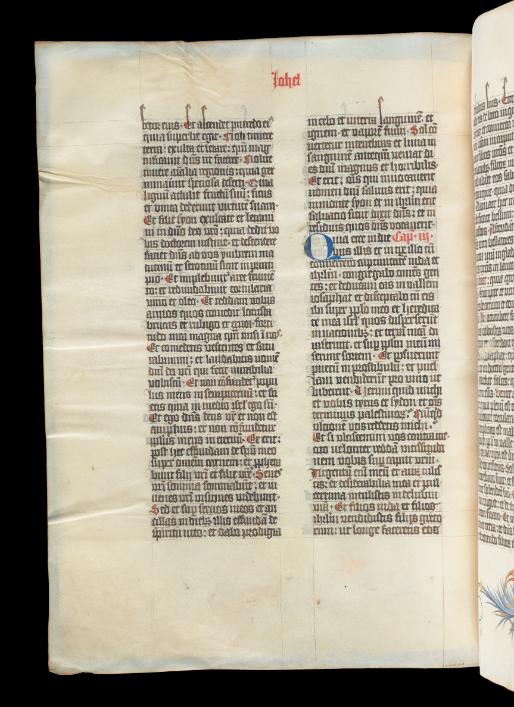 Iohel
fetor eius · Et ascendet putredo ei⁹
quia superbe egit · Noli timere
terra : exulta et letare : qm̄ mag
nificauit dn̄s ut faceret · Nolite
timere aīalia regionis : quia ger
minauerūt speciosa deserti · Quia
lignū attulit fructū suū : ficus
et vinea dederunt virtutē suam ·
Et filie syon exultate et letami
ni in dn̄o deo vr̄o : quia dedit vo
bis doctorem iusticie · et descendere
faciet ad vos ymbrem ma
tutinū et serotinū sicut in princi
pio · Et implebunt᷑ aree frumē
to : et redundabunt torcularia
vino et oleo · Et reddam vobis
annos quos comedit locusta
bruc⁹ et rubigo et eruca · forti
tudo mea magna quā misi ī vos ·
Et comedetis vescentes et satu
rabimini : et laudabitis nomē
dn̄i dei vr̄i qui fecit mirabilia
vobiscū · Et non cōfundet᷑ popu
lus meus in sempiternū : et sci
etis quia in medio isrl̄ ego sū ·
Et ego dn̄s deus vr̄ et non est
amplius : et non cōfundetur
populus meus in eternū · Et erit :
post hec effundam de spū meo
super omnem carnem : et prophe
tabūt filij vr̄i et filie vr̄e · Senes
vr̄i somnia somniabūt : et iu
uenes vr̄i visiones videbunt ·
Sed et sup̄ seruos meos et an
cillas in dieb⁹ illis effundā de
spiritu meo : et dabo prodigia
in celo et in terra sanguinē · et
ignem · et vaporē fumi · Sol cō
uertetur in tenebras et luna in
sanguinē antequā veniat di
es dn̄i magnus et horribilis ·
Et erit : oīs qui inuocauerit
nomen dn̄i saluus erit : quia
in monte syon et in ihrl̄m erit
saluatio sicut dixit dn̄s : et in
residuis quos dn̄s vocauerit ·
Quia ecce in die Cap · iij ·
bus illis et in tp̄e illo cū
conuertero captiuitatē iuda et
ihrl̄m · congregabo omēs gen
tes : et deducam eas in vallem
iosaphat et disceptabo cū eis
ibi super pplo meo et heredita
te mea isrl̄ quos disperserūt
in nacionib⁹ : et terrā meā di
uiserunt · et sup̄ pplm meū mi
serunt sortem · Et posuerunt
puerū in prostibulū : et puel
lam vendiderūt pro vino ut
biberent · Verum quid michi
et vobis tyrus et sydon et oīs
terminus palestinorꝫ · Nūqd̄
vlcionē vos reddetis michi ·
Et si vlciscimini vos contra me ·
cito velociter reddā vicissitudi
nem vobis sup̄ caput vr̄m ·
Argentū eni meū et aurū tulis
tis : et desiderabilia mea et pul
cerrima intulistis in delubra
vr̄a · Et filios iuda et filios
ihrl̄m vendidistis filijs greco
rum : ut longe faceretis eos